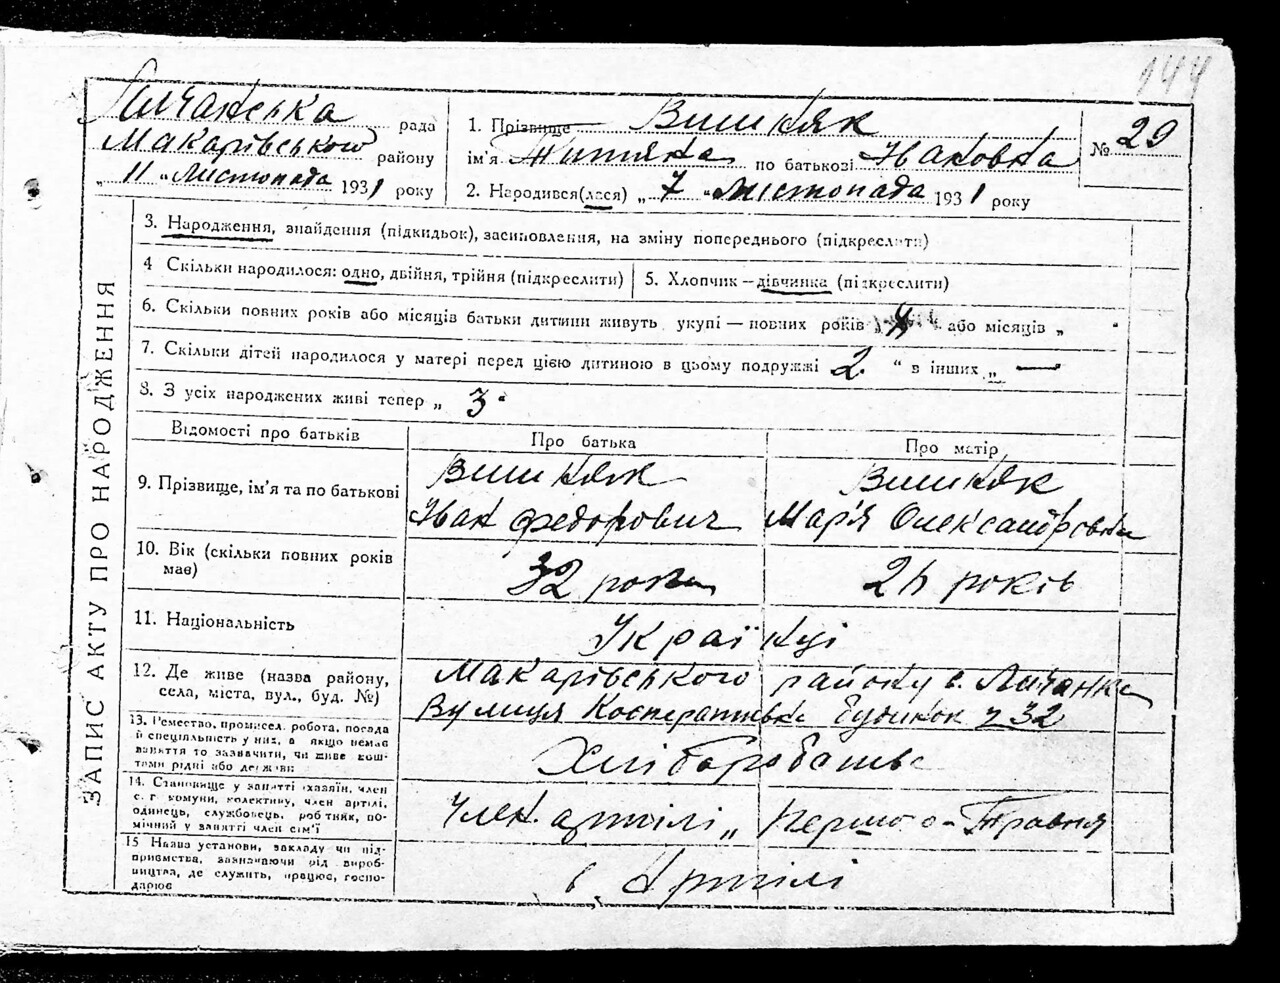 144
Личанська рада
Макарівського району
„ 11 “ Листопада 1931 року
1. Прізвище Вишняк
ім'я Титяна по батькові Івановна
2. Народився(лася) „ 7 “ Листопада 1931 року
№ 29
ЗАПИС АКТУ ПРО НАРОДЖЕННЯ
3. Народження, знайдення (підкидьок), засиновлення, на зміну попереднього (підкреслити)
4 Скільки народилося: одно, двійня, трійня (підкреслити)
5. Хлопчик – дівчинка (підкреслити)
6. Скільки повних років або місяців батьки дитини живуть укупі — повних років або місяців „
7. Скільки дітей народилося у матері перед цією дитиною в цьому подружжі 2 “ в інших „ —
8. З усіх народжених живі тепер „ 3
Відомості про батьків
Про батька
Про матір
9. Прізвище, ім'я та по батькові
Вишняк
Іван Федорович
Вишняк
Мар'я Олександровна
10. Вік (скільки повних років має)
32 роки
2h років
11. Національність
Українці
12. Де живе (назва району,
села, міста, вул., буд. №)
Макарівського району с. Личанка
Вулиця Коєперативна будинок ч 32
13. Ремество, промисел, робота, посада
й спеціяльність у них, а якщо немає
заняття то зазначити, чи живе кош-
тами рідні або держави
Хліборобство
14. Становище у занятті (хазяїн, член
с. г комуни, колективу, член артілі,
одинець, службовець, робітник, по-
мічний у занятті член сім'ї
Член. артілі „ Першого Травня
15 Назва установи, закладу чи під-
приємства, зазначаючи рід вироб-
ництва, де служить, працює, госпо-
дарює
в Артілі